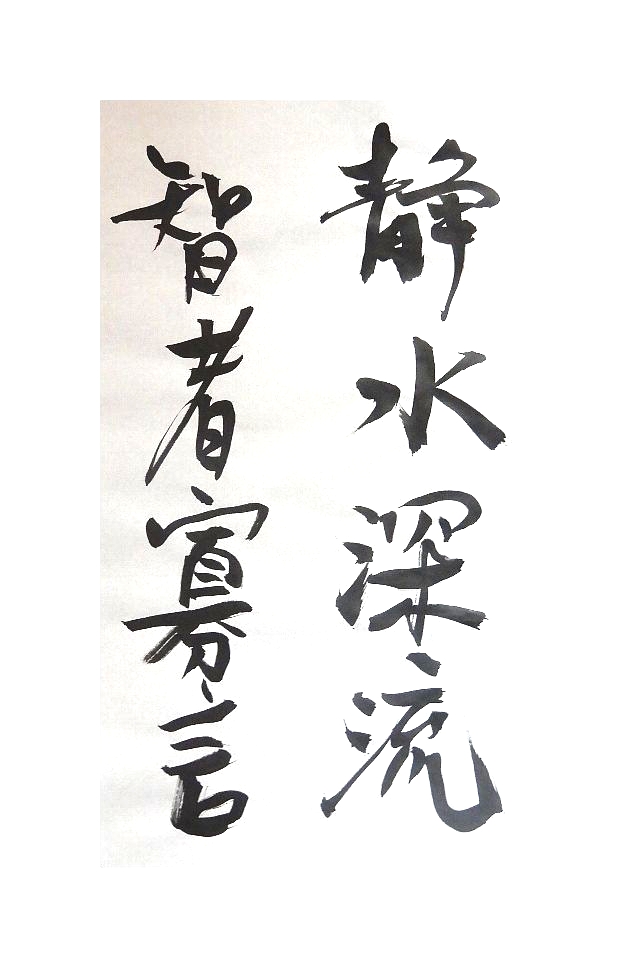 静水深流
智者寡言